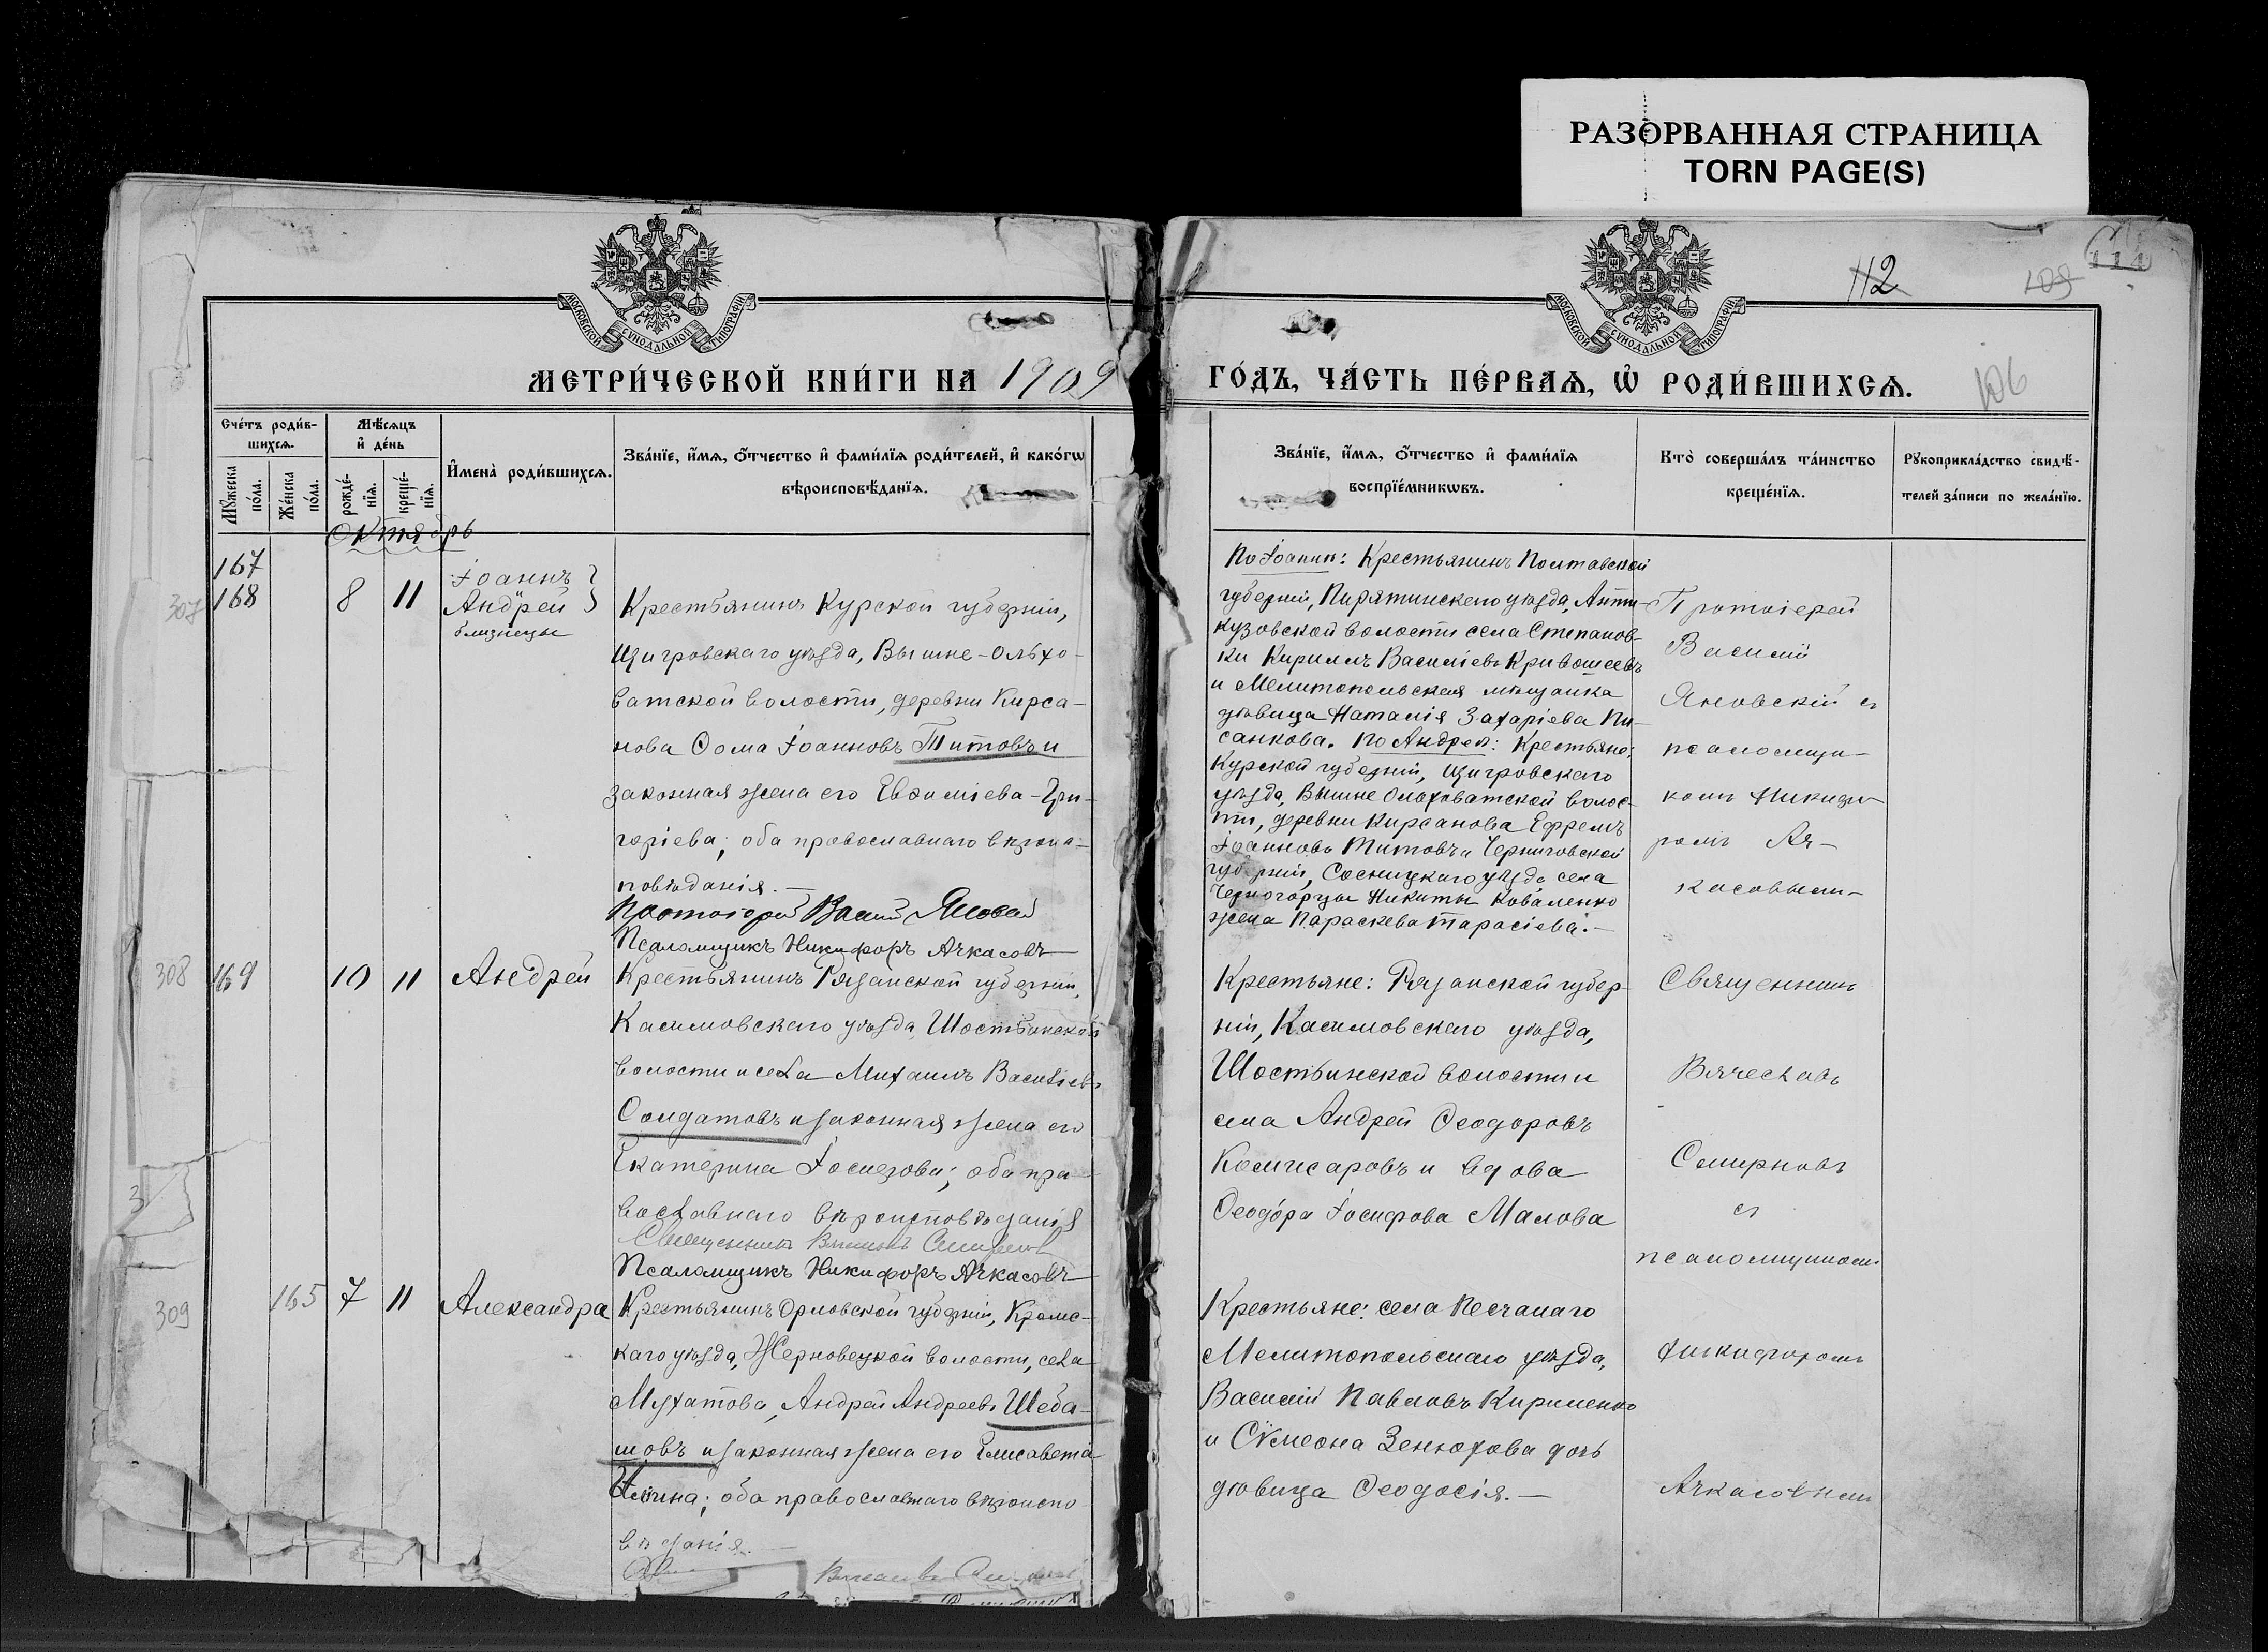 РАЗОРВАННАЯ СТРАНИЦА
TORN PAGE(S)
МОСКОВСКОЙ СУНОДАЛЬНОЙ ТИПОГРАФІИ
МОСКОВСКОЙ СУНОДАЛЬНОЙ ТИПОГРАФІИ
112
109
106
МЕТРИ́ЧЕСКОЙ КНИ́ГИ НА 1909
ГО́ДЪ, ЧА́СТЬ ПЕ́РВАѦ, Ѡ҆ РОДИ́ВШИХСѦ.
Сче́тъ роди́в-
шихсѧ.
Мꙋ́жеска
по́ла.
Же́нска
по́ла.
Мѣ́сѧцъ
и҆ де́нь
рожде́-
нїѧ.
креще́-
нїѧ.
И҆мена̀ роди́вшихсѧ.
Зва́нїе, и҆́мѧ, ѻ҆́тчество и҆ фами́лїѧ роди́телей, и҆ како́гѡ
вѣроисповѣ́данїѧ.
Зва́нїе, и҆́мѧ, ѻ҆́тчество и҆ фами́лїѧ
воспрїе́мникѡвъ.
Кто̀ соверша́лъ та́инство
креще́нїѧ.
Рꙋкоприкла́дство свидѣ́-
телей за́писи по жела́нїю.
Октябрь
307
167
168
8
11
Іоаннъ
Андрей
близнецы
Крестьянинъ Курской губерніи,
Щигровскаго уѣзда, Вышне-Ольхо-
ватской волости, деревни Кирса-
нова Ѳома Іоанновъ Титовъ и
законная жена его Евѳиміева-Гри-
горіева; оба православнаго вѣроис-
повѣданія.—
Протоіерей Василій Яновскій
Псаломщикъ Никифоръ Ачкасовъ
По Іоанну: Крестьянинъ Полтавской
губерніи, Пирятинскаго уѣзда, Анти-
кузовской волости села Степанов-
ки Кириллъ Василіевъ Кривошеевъ
и Мелитопольская мѣщанка
дѣвица Наталія Захаріева Пи-
санкова. По Андрею: Крестьяне:
Курской губерніи, Щигровскаго
уѣзда, Вышне Ольховатской волос-
ти, деревни Кирсанова Ефремъ
Іоанновъ Титовъ и Черниговской
губерніи, Сосницкаго уѣзда села
Никиты Коваленко
жена Параскева Тарасіева.—
Протоіерей
Василій
Яновскій съ
псаломщи-
комъ Никифо-
ромъ Ач-
касовымъ—
308
169
10
11
Андрей
Крестьянинъ Рязанской губерніи,
Касимовскаго уѣзда, Шостьинской
волости и села Михаилъ Василіевъ
Солдатовъ и законная жена его
Екатерина Іосифова; оба пра-
вославнаго вѣроисповѣданія
Священникъ Вячеславъ Смирновъ
Псаломщикъ Никифоръ Ачкасовъ
Крестьяне: Рязанской губер-
ніи, Касимовскаго уѣзда,
Шостьинской волости и
села Андрей Ѳеодоровъ
Комисаровъ и вдова
Ѳеодора Іосифова Малова
Священникъ
Вячеславъ
Смирновъ
съ
псаломщикомъ
Никифоромъ
Ачкасовымъ
3
309
165
7
11
Александра
Крестьянинъ Орловской губерніи, Кромс-
каго уѣзда, Жерновецкой волости, села
Мухатова, Андрей Андреевъ Шеба-
шовъ и законная жена его Елисавета
оба православнаго вѣроиспо
вѣданія.—
Крестьяне: села Песчанаго
Мелитопольскаго уѣзда,
Василій Павловъ Кириленко
и Сѵмеона Зенюхова дочь
дѣвица Ѳеодосія.—